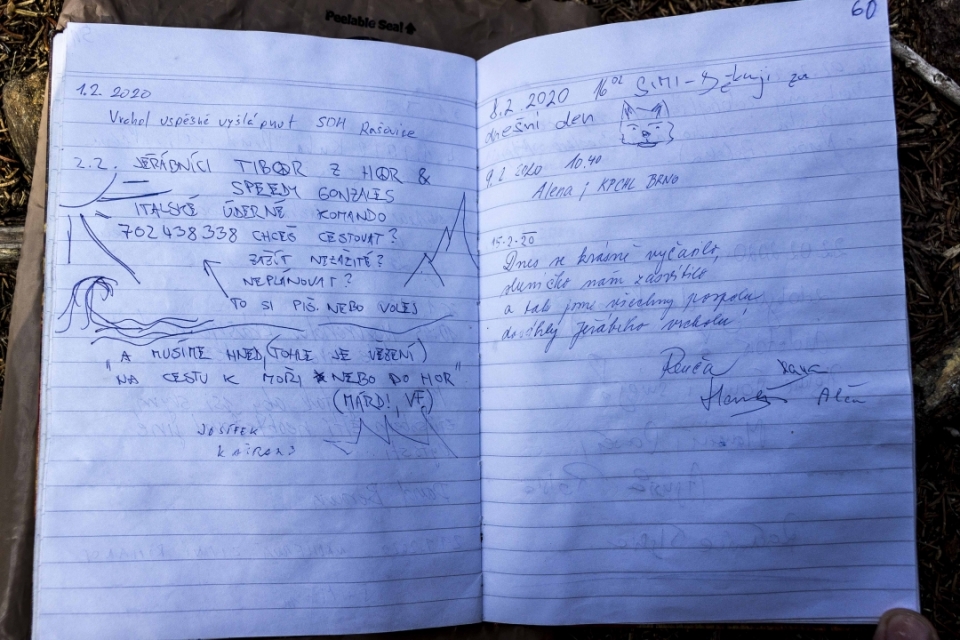 Peelable Seal
60
1.2. 2020
Vrchol uspěšně vyšlápnut SDH Rašovice
2.2. JEŘÁBNÍCI TIBOR Z HOR &
SPEEDY GONZALES
ITALSKÉ ÚDERNÉ KOMANDO
702 438 338 CHCEŠ CESTOVAT?
ZAŽÍT NEZAŽITÉ?
NEPLÁNOVAT?
TO SI PIŠ. NEBO VOLEJ
"A MUSÍME HNED, (TOHLE JE VĚZENÍ)
NA CESTU K MOŘI NEBO DO HOR"
(MARDI, VF)
8.2.2020 16 02 SIMI - Děkuji za
dnešní den
9.2 2020 10.40
Alena j KPCHL BRNO
15.2.20
Dnes se krásně vyčasilo,
sluníčko nám zasvítilo
a tak jsme všechny pospolu
dosáhly Jeřábího vrcholu!
Renča Jana
Hanka Alča